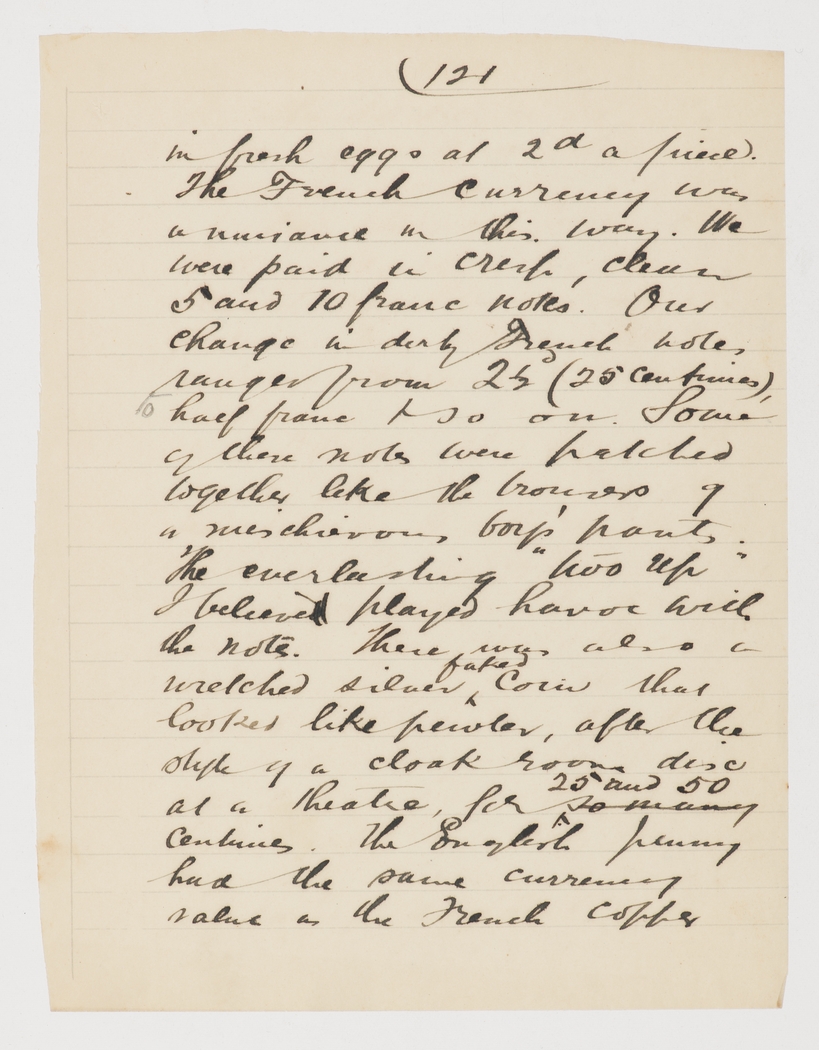 (121
in fresh eggs at 2d a piece.
The French currency was
a nuisance in this way. We
were paid in cresp, clean
5 and 10 franc notes. Our
change in dirty French notes
ranged from 2½ (25 centimes),
to half franc & so on. Some
of these notes were patched
together like the trousers of
a mischievous boy's pants.
The everlasting "two up"
I believed played havoc with
the notes. There was also a
wretched silver faked coin that
looked like pewter, after the
style of a cloak room disc
at a theatre, for so many 25 and 50
centimes. The English penny
had the same currency
value as the French copper